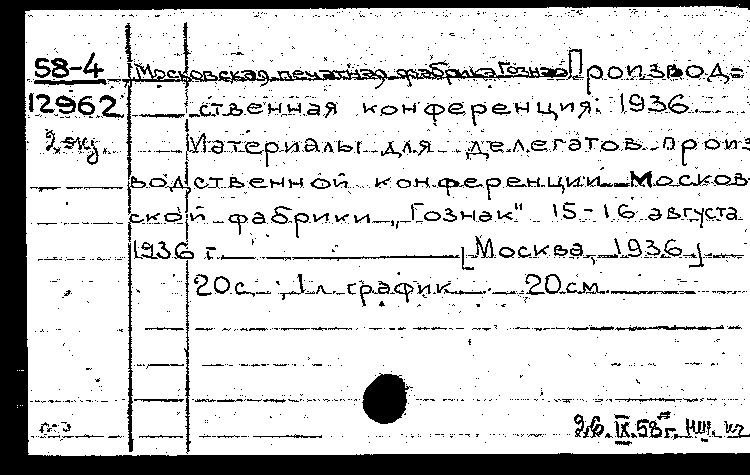 58-4 Московская печатная фабрика Гознак Производ=
12962 ственная конференция. 1936
2 экз. Материалы для делегатов произ
водственной конференции Москов
ской фабрики „Гознак" 15-16 августа
1936 г. [Москва, 1936]
20с. ; 1л график 20см
26.IX.58г.